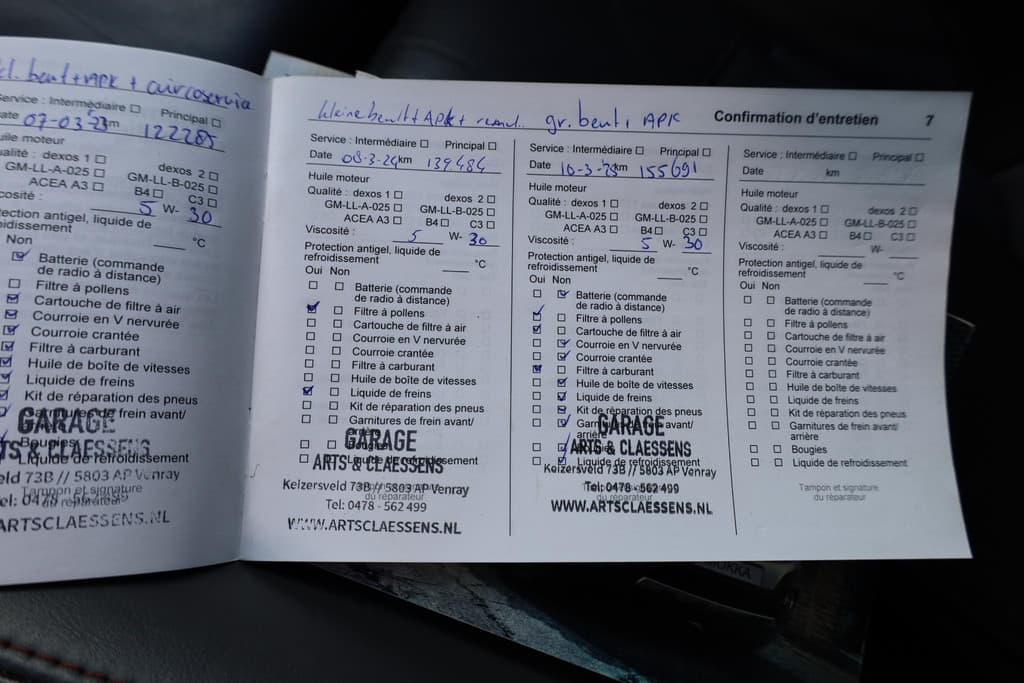 kl. beurt + APK + aircoservice
Service : Intermédiaire ☐ Principal ☐
Date 07-03-23 km 122285
Huile moteur
Qualité : dexos 1 ☐ dexos 2 ☐
GM-LL-A-025 ☐ GM-LL-B-025 ☐
ACEA A3 ☐ B4 ☐ C3 ☐
Viscosité : 5 W- 30
Protection antigel, liquide de
refroidissement ____ °C
Non
☑ Batterie (commande
de radio à distance)
☐ Filtre à pollens
☑ Cartouche de filtre à air
☑ Courroie en V nervurée
☑ Courroie crantée
☑ Filtre à carburant
☑ Huile de boîte de vitesses
☑ Liquide de freins
☑ Kit de réparation des pneus
☑ Garnitures de frein avant/
GARAGE
Bougies
ARTS & CLAESSENS
Liquide de refroidissement
Keizersveld 73B // 5803 AP Venray
Tampon et signature
du réparateur
Tel: 0478 - 562 499
WWW.ARTSCLAESSENS.NL
kleine beurt + APK +
Service : Intermédiaire ☐ Principal ☐
Date 08-3-24 km 139484
Huile moteur
Qualité : dexos 1 ☐ dexos 2 ☐
GM-LL-A-025 ☐ GM-LL-B-025 ☐
ACEA A3 ☐ B4 ☐ C3 ☐
Viscosité : 5 W- 30
Protection antigel, liquide de
refroidissement ____ °C
Oui Non
☐ ☐ Batterie (commande
de radio à distance)
☑ ☐ Filtre à pollens
☐ ☐ Cartouche de filtre à air
☐ ☐ Courroie en V nervurée
☐ ☐ Courroie crantée
☐ ☐ Filtre à carburant
☐ ☐ Huile de boîte de vitesses
☑ ☐ Liquide de freins
☐ ☐ Kit de réparation des pneus
☐ ☐ Garnitures de frein avant/
arrière
GARAGE
☐ ☐ Bougies
☐ ☐ Liquide de refroidissement
ARTS & CLAESSENS
Keizersveld 73B // 5803 AP Venray
du réparateur
Tel: 0478 - 562 499
WWW.ARTSCLAESSENS.NL
gr. beurt + APK
Confirmation d'entretien 7
Service : Intermédiaire ☐ Principal ☐
Date 10-3-25 km 155691
Huile moteur
Qualité : dexos 1 ☐ dexos 2 ☐
GM-LL-A-025 ☐ GM-LL-B-025 ☐
ACEA A3 ☐ B4 ☐ C3 ☐
Viscosité : 5 W- 30
Protection antigel, liquide de
refroidissement ____ °C
Oui Non
☐ ☑ Batterie (commande
de radio à distance)
☑ ☐ Filtre à pollens
☑ ☐ Cartouche de filtre à air
☐ ☑ Courroie en V nervurée
☐ ☑ Courroie crantée
☑ ☐ Filtre à carburant
☐ ☑ Huile de boîte de vitesses
☐ ☑ Liquide de freins
☐ ☑ Kit de réparation des pneus
☐ ☑ Garnitures de frein avant/
arrière
GARAGE
☐ ☑ Bougies
ARTS & CLAESSENS
☐ ☑ Liquide de refroidissement
Keizersveld 73B // 5803 AP Venray
Tel: 0478 - 562 499
du réparateur
WWW.ARTSCLAESSENS.NL
Service : Intermédiaire ☐ Principal ☐
Date km
Huile moteur
Qualité : dexos 1 ☐ dexos 2 ☐
GM-LL-A-025 ☐ GM-LL-B-025 ☐
ACEA A3 ☐ B4 ☐ C3 ☐
Viscosité : ____ W- ____
Protection antigel, liquide de
refroidissement ____ °C
Oui Non
☐ ☐ Batterie (commande
de radio à distance)
☐ ☐ Filtre à pollens
☐ ☐ Cartouche de filtre à air
☐ ☐ Courroie en V nervurée
☐ ☐ Courroie crantée
☐ ☐ Filtre à carburant
☐ ☐ Huile de boîte de vitesses
☐ ☐ Liquide de freins
☐ ☐ Kit de réparation des pneus
☐ ☐ Garnitures de frein avant/
arrière
☐ ☐ Bougies
☐ ☐ Liquide de refroidissement
Tampon et signature
du réparateur